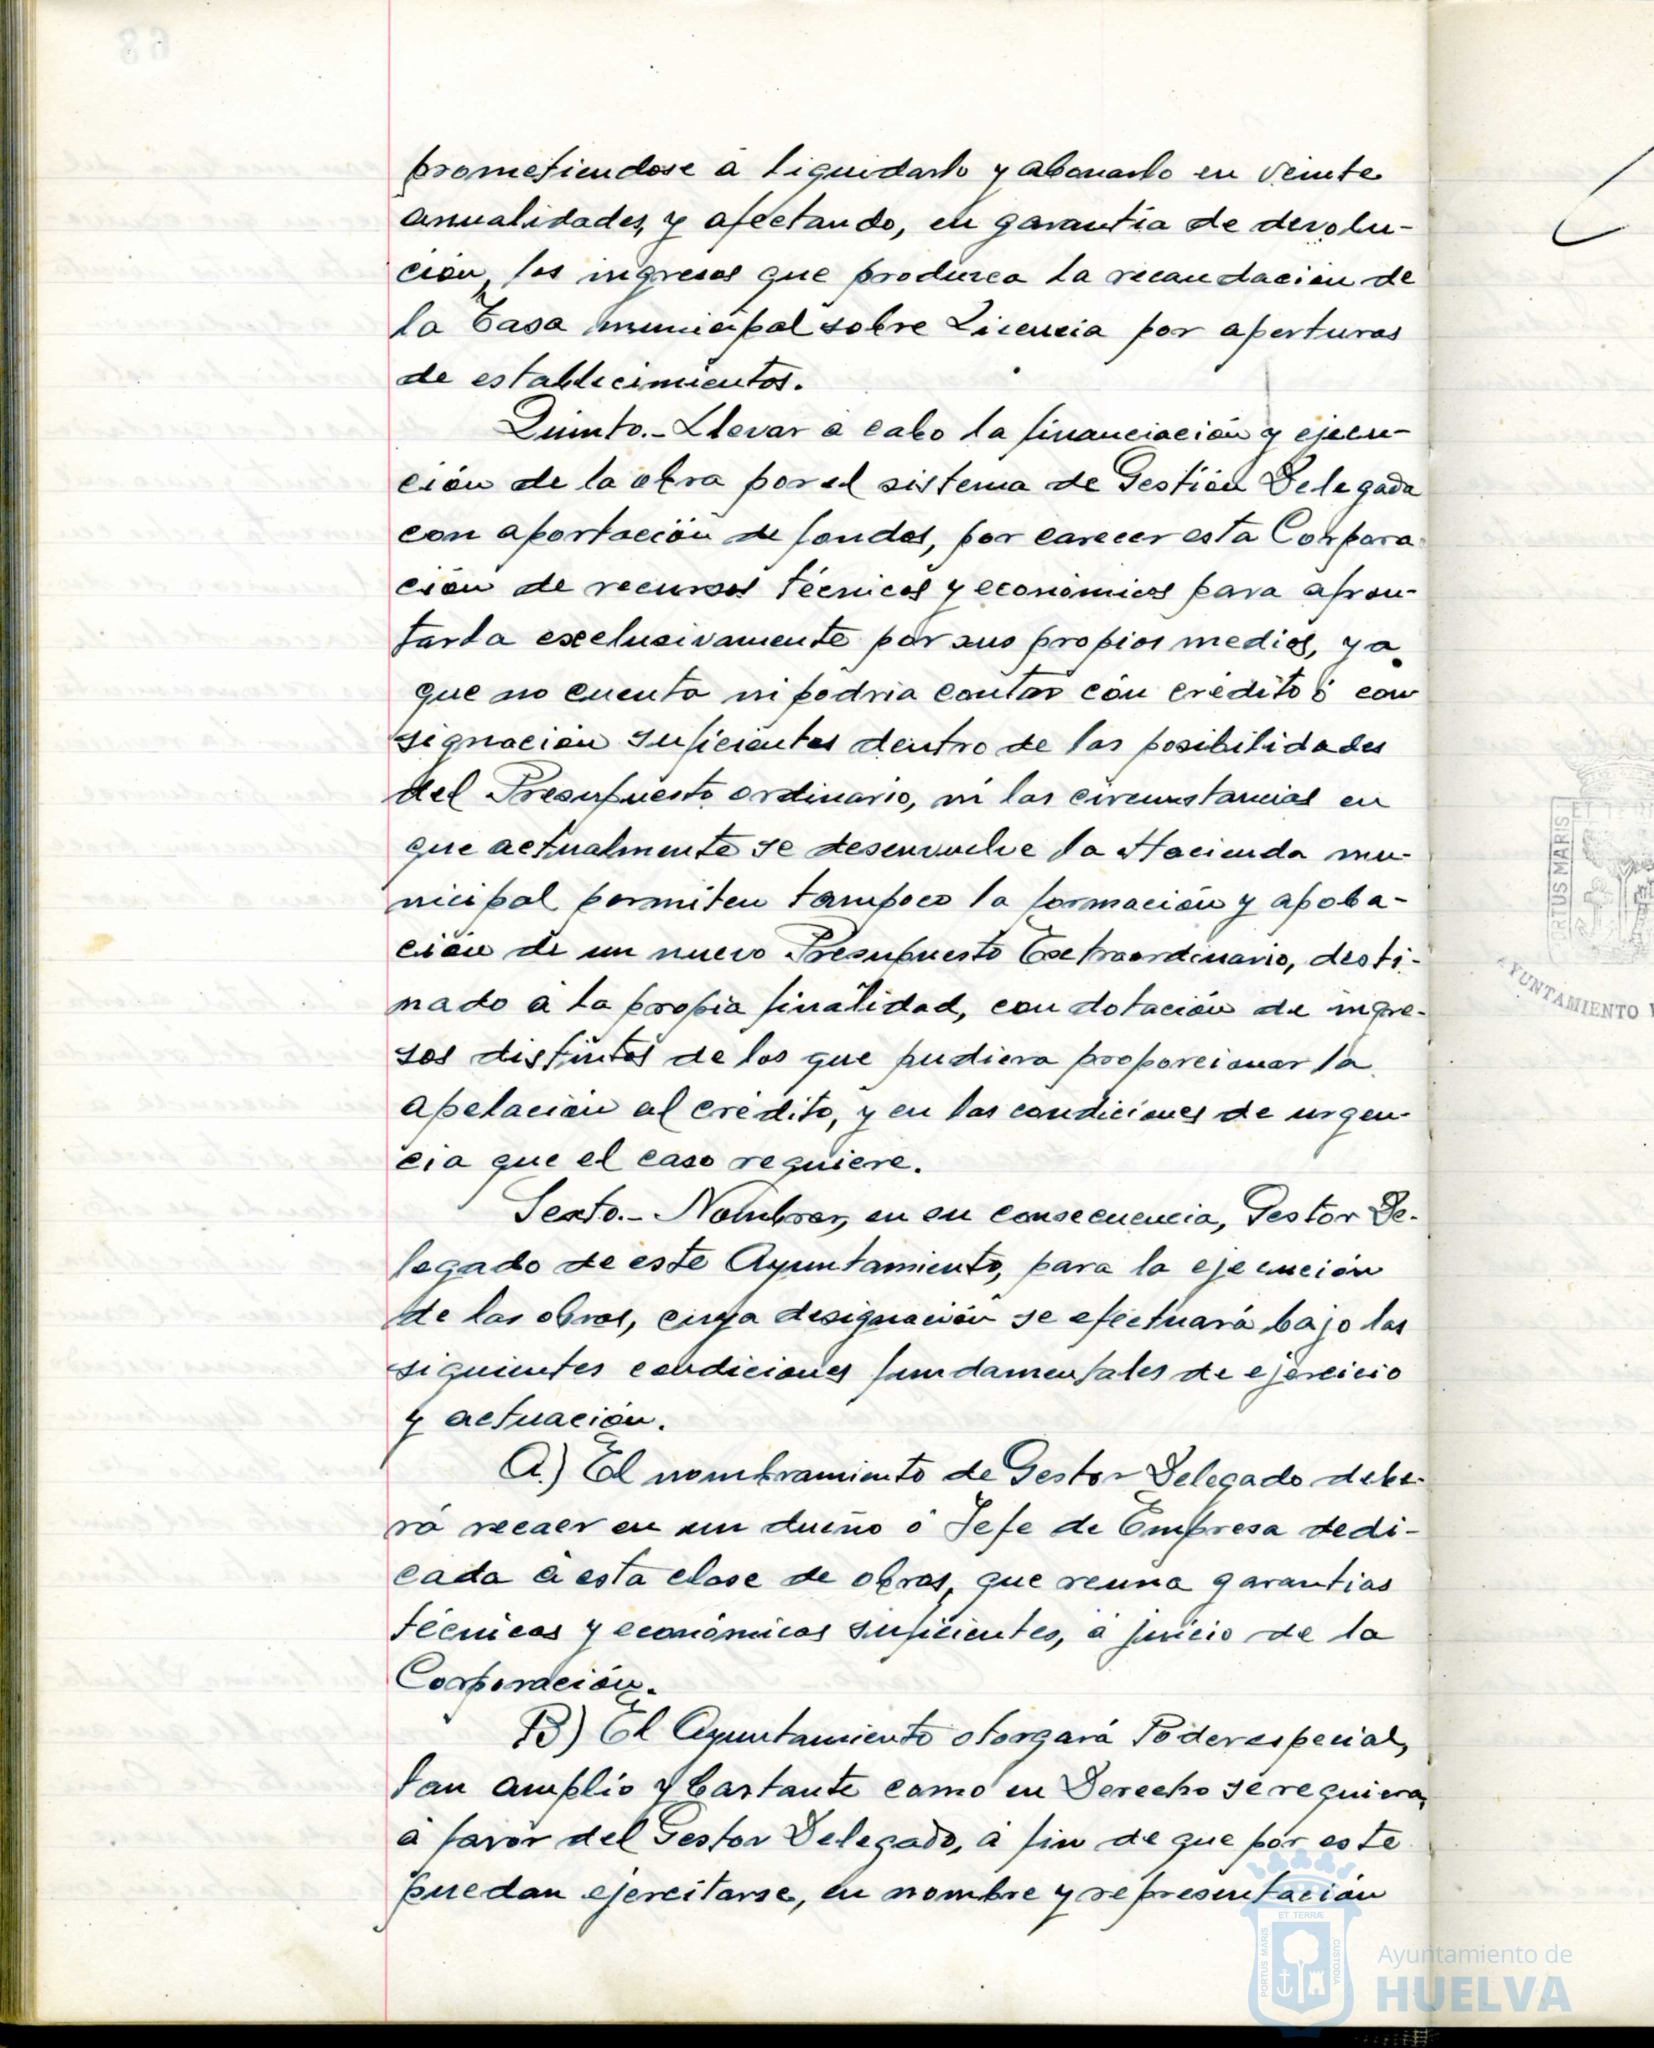 prometiendose á liquidarlo y abonarlo en veinte
anualidades, y afectando, en garantía de devolu-
ción, los ingresos que produzca la recaudación de
la Tasa municipal sobre Licencia por aperturas
de establecimientos.
Quinto.- Llevar á cabo la financiación y ejecu-
ción de la obra por el sistema de Gestión Delegada
con aportación de fondos, por carecer esta Corpora
ción de recursos técnicos y económicos para afron-
tarla exclusivamente por sus propios medios, ya
que no cuenta ni podría contar con crédito ó con
signación suficientes dentro de las posibilidades
del Presupuesto ordinario, ni las circunstancias en
que actualmente se desenvuelve la Hacienda mu-
nicipal permiten tampoco la formación y apoba-
ción de un nuevo Presupuesto Extraordinario, desti-
nado á la propia finalidad, con dotación de ingre-
sos distintos de los que pudiera proporcionar la
apelación al crédito, y en las condiciones de urgen-
cia que el caso requiere.
Sexto.- Nombrar, en su consecuencia, Gestor De-
legado de este Ayuntamiento, para la ejecución
de las obras, cuya designación se efectuará bajo las
siguientes condiciones fundamentales de ejercicio
y actuación.
A.) El nombramiento de Gestor Delegado debe-
rá recaer en un dueño ó Jefe de Empresa dedi-
cada á esta clase de obras, que reuna garantías
técnicas y económicas suficientes, á juicio de la
Corporación.
B) El Ayuntamiento otorgará Poder especial,
tan amplio y bastante como en Derecho se requiera,
á favor del Gestor Delegado, á fin de que por este
puedan ejercitarse, en nombre y representación
PORTUS MARIS
ET TERRÆ
CUSTODIA
Ayuntamiento de
HUELVA
PORTUS MARIS
ET
AYUNTAMIENTO